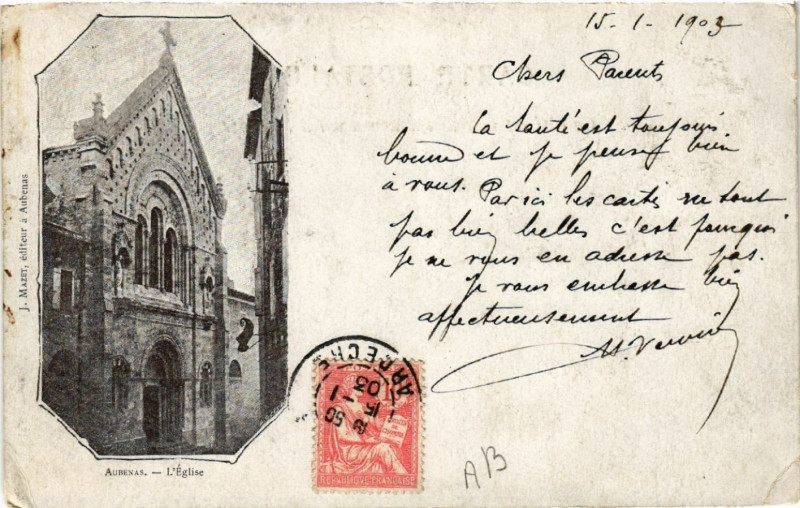 15-1-1903
Chers Parents
La santé est toujours
bonne et je pense bien
à vous. Par ici les cartes ne sont
pas bien belles c'est pourquoi
je ne vous en adresse pas.
Je vous embrasse bien
affectueusement
J. MAZET, éditeur à Aubenas
AUBENAS. — L'Église
ARDECHE
15 - 1
03
REPUBLIQUE FRANCAISE
AB